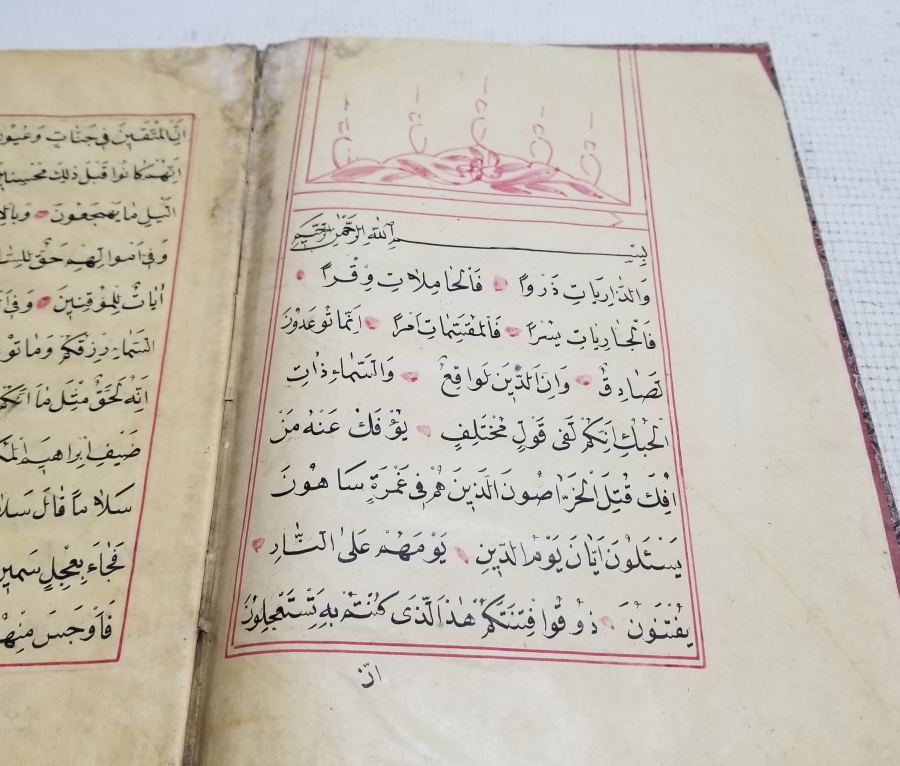 بِسْمِ اللّٰهِ الرَّحْمٰنِ الرَّحِيْمِ
وَالذّٰارِيٰاتِ ذَرْوًا فَالْحٰامِلاٰتِ وِقْرًا
فَالْجٰارِيٰاتِ يُسْرًا فَالْمُقَسِّمٰاتِ اَمْرًا اِنَّمٰا تُوعَدُوْنَ
لَصٰادِقٌ وَاِنَّ الدِّيْنَ لَوٰاقِعٌ وَالسَّمٰاءِ ذٰاتِ
الْحُبُكِ اِنَّكُمْ لَفى قَوْلٍ مُخْتَلِفٍ يُؤْفَكُ عَنْهُ مَنْ
اُفِكَ قُتِلَ الْخَرّٰاصُونَ اَلَّذِيْنَ هُمْ فِى غَمْرَةٍ سٰاهُونَ
يَسْئَلُوْنَ اَيّٰانَ يَوْمُ الدّٖينِ يَوْمَ هُمْ عَلَى النّٰارِ
يُفْتَنُوْنَ ذُوقُوا فِتْنَتَكُمْ هٰذَا الَّذٖى كُنْتُمْ بِهٖ تَسْتَعْجِلُوْنَ
انّ
اِنَّ الْمُتَّقٖينَ فٖى جَنّٰاتٍ وَعُيُونٍ
اِنَّهُمْ كٰانُوا قَبْلَ ذٰلِكَ مُحْسِنٖينَ
الَّيْلِ مٰا يَهْجَعُونَ
وَفٖى اَمْوٰالِهِمْ حَقٌّ
اٰيٰاتٌ لِلْمُوقِنٖينَ وَفٖى
السَّمٰاءِ رِزْقُكُمْ وَمٰا
اِنَّهُ لَحَقٌّ مِثْلَ مٰا
ضَيْفِ اِبْرٰاهٖيمَ
سَلاٰمًا قٰالَ
فَجٰاءَ بِعِجْلٍ سَمٖينٍ
فَاَوْجَسَ مِنْهُمْ